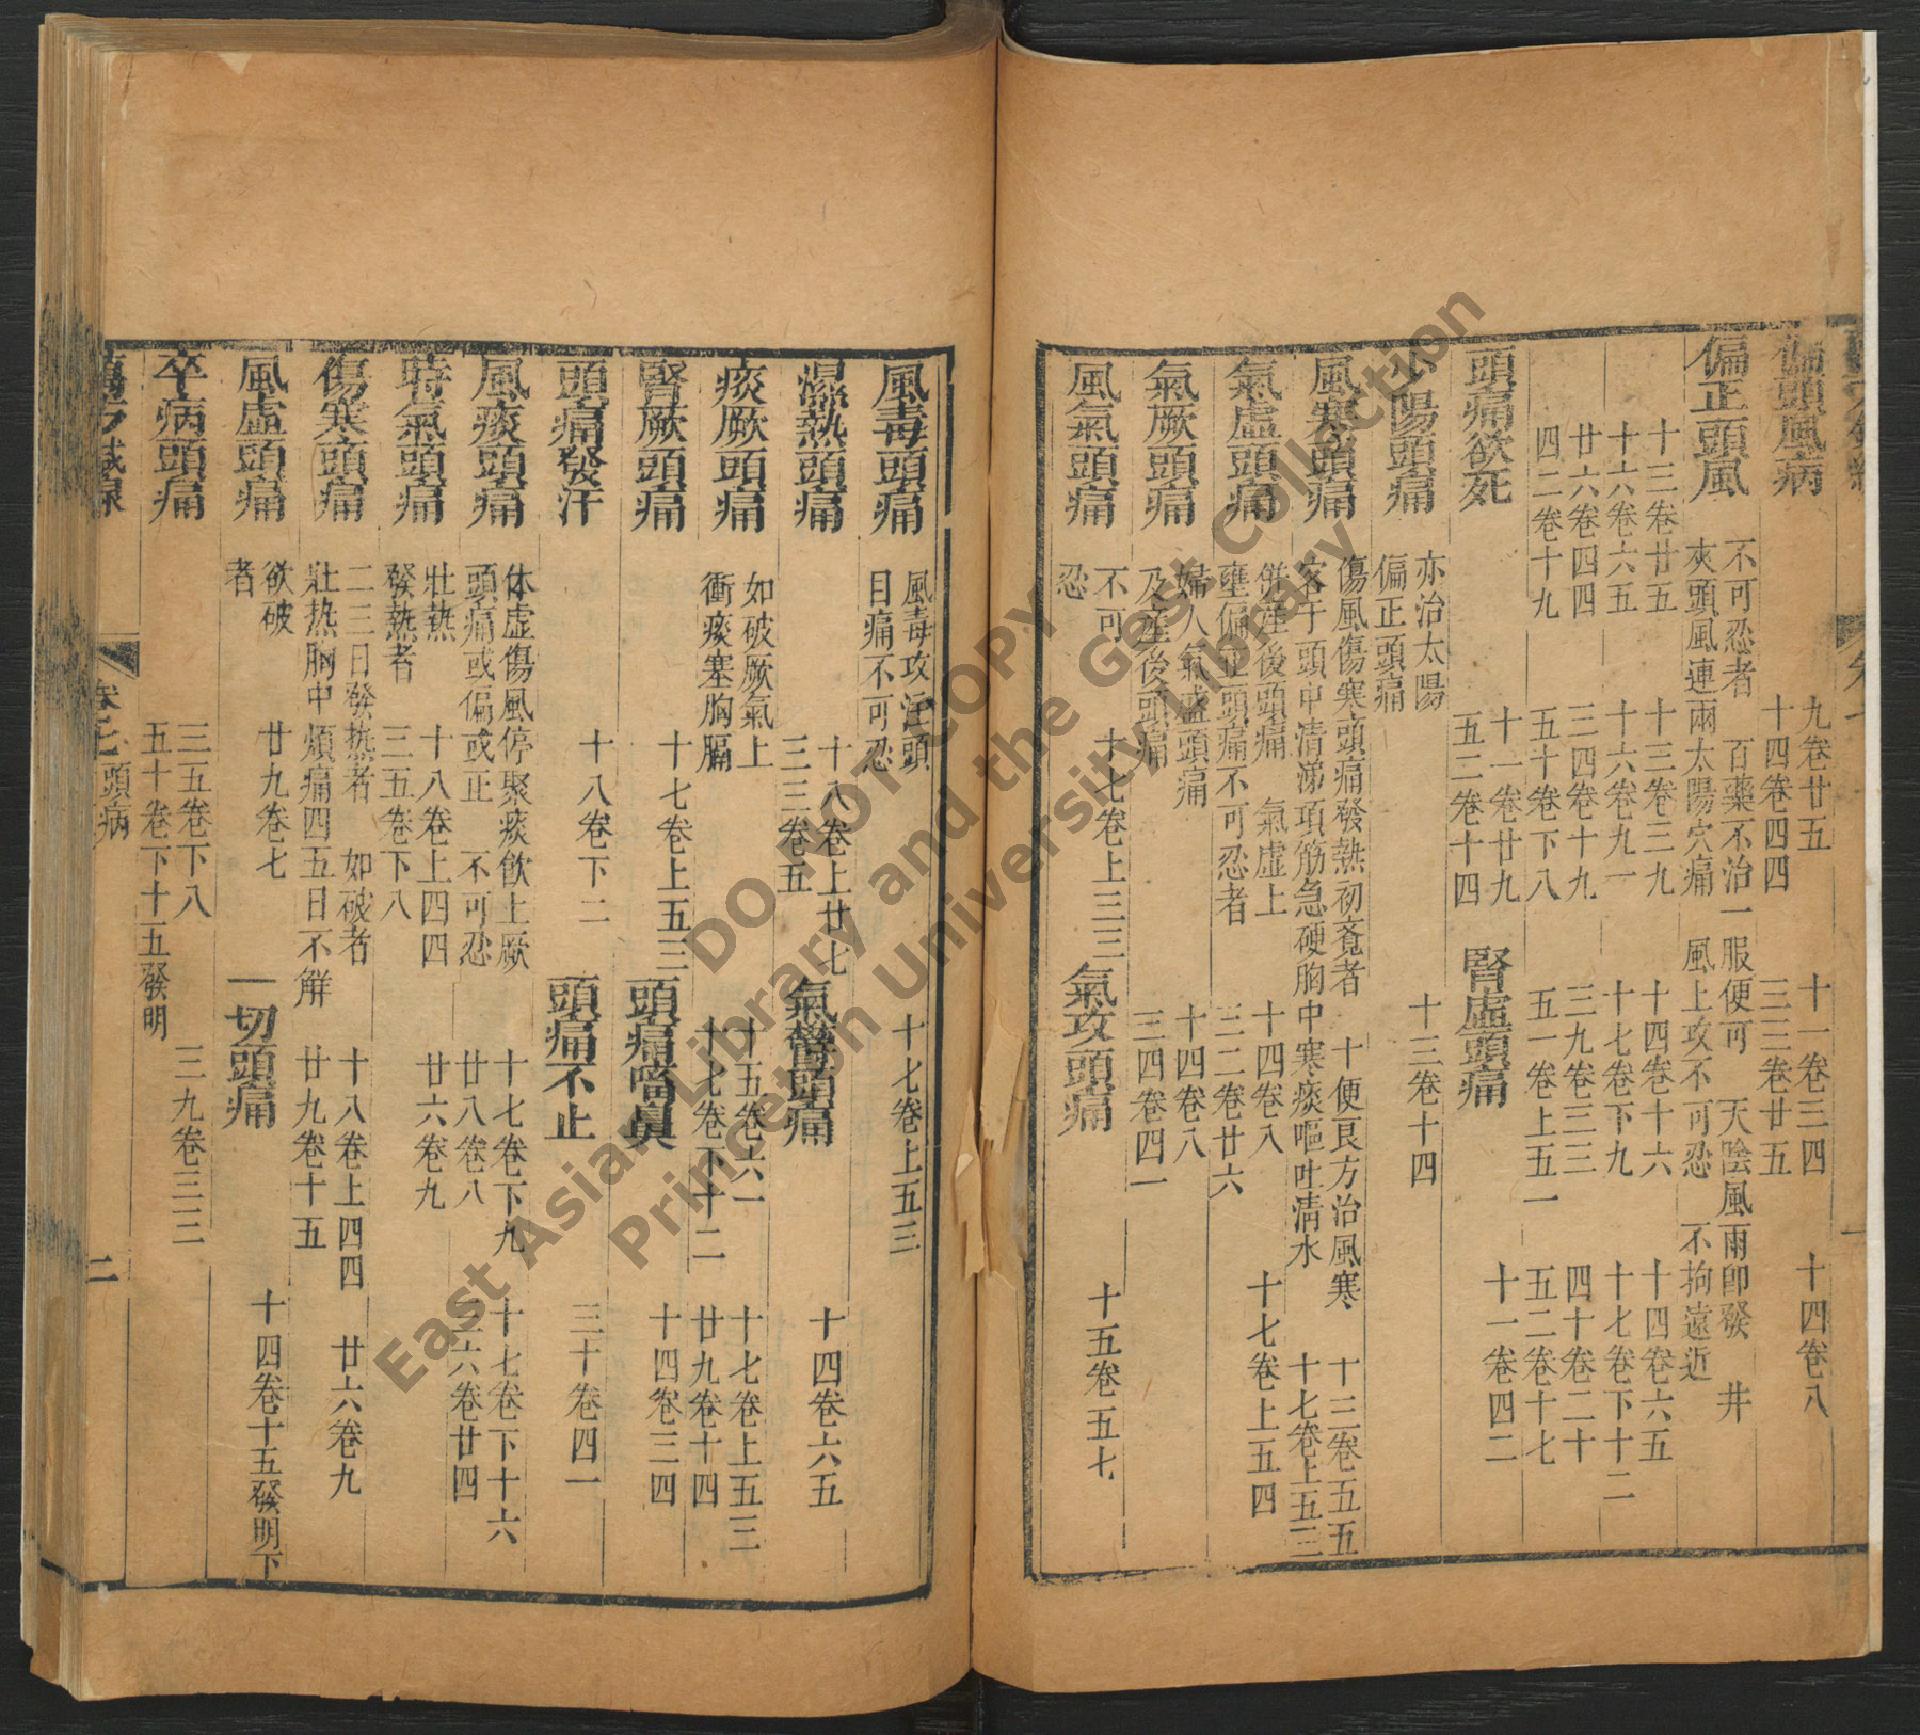 偏頭風病 九卷廿五 十一卷三四 十四卷八
十四卷四四 三三卷廿五
偏正頭風 不可忍者 百藥不治一服便可 天陰風雨即發 井
夾頭風連兩太陽穴痛 風上攻不可忍 不拘遠近
十三卷廿五 十三卷三九 十四卷十六 十四卷六五
十六卷六五 十六卷九一 十七卷下九 十七卷下十二
廿六卷四四 三四卷十九 三九卷三三 四十卷二十
四二卷十九 五十卷下八 五一卷上五一 五二卷十七
頭痛欲死 十一卷廿九 腎虛頭痛 十一卷四二
五二卷十四
陽頭痛 亦治太陽 十三卷十四
偏正頭痛
風寒頭痛 傷風傷寒頭痛發熱初覔者 十便良方治風寒 十三卷五五
客于頭中清涕項筋急硬胸中寒痰嘔吐清水 十七卷上五三
氣虛頭痛 併產後頭痛 氣虛上 十四卷八 十七卷上五四
壅偏正頭痛不可忍者 三二卷廿六
氣厥頭痛 婦人氣盛頭痛 十四卷八
及產後頭痛 三四卷四一
風氣頭痛 不可 十七卷上三三 氣攻頭痛 十五卷五七
忍
風毒頭痛 風毒攻注頭 十七卷上五三
目痛不可忍
濕熱頭痛 十八卷上廿七 氣鬱頭痛 十四卷六五
三三卷五
痰厥頭痛 如破厥氣上 十五卷六一 十七卷上五三
衝痰塞胸膈 十七卷下十二 廿九卷十四
腎厥頭痛 十七卷上五三 頭痛㗜鼻 十四卷三四
頭痛發汗 十八卷下二 頭痛不止 三十卷四一
風痰頭痛 体虛傷風停聚痰飲上厥 十七卷下九 十七卷下十六
頭痛或偏或正 不可忍 廿八卷八 三六卷廿四
時氣頭痛 壯熱 十八卷上四四 廿六卷九
發熱者 三五卷下八
傷寒頭痛 二三日發熱者 如破者 十八卷上四四 廿六卷九
壯热胸中煩痛四五日不觧 廿九卷十五
風虛頭痛 欲破 廿九卷七 一切頭痛 十四卷十五發明下
者
卒病頭痛 三五卷下八 三九卷三三
五十卷下十五發明
萬方鍼線 卷七 頭病 二